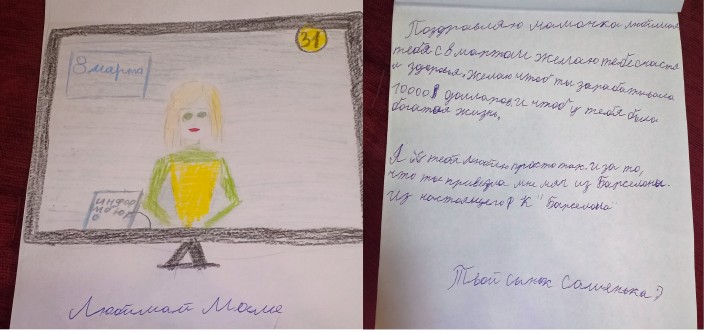 31
8 марта
инфор
мбюр
о
Любимай Маме
Поздравляю мамочка любимая
тебя с 8 мартам желаю тебе счастя
и здоровья. Желаю чтоб ты зарабатывала
10000$ долларов. И чтоб у тебя была
богатая жизнь.
Я тебя люблю просто так. И за то,
что ты привезла мне мяч из Барселоны.
Из настоящего ФК "Барселона
Твой сынок